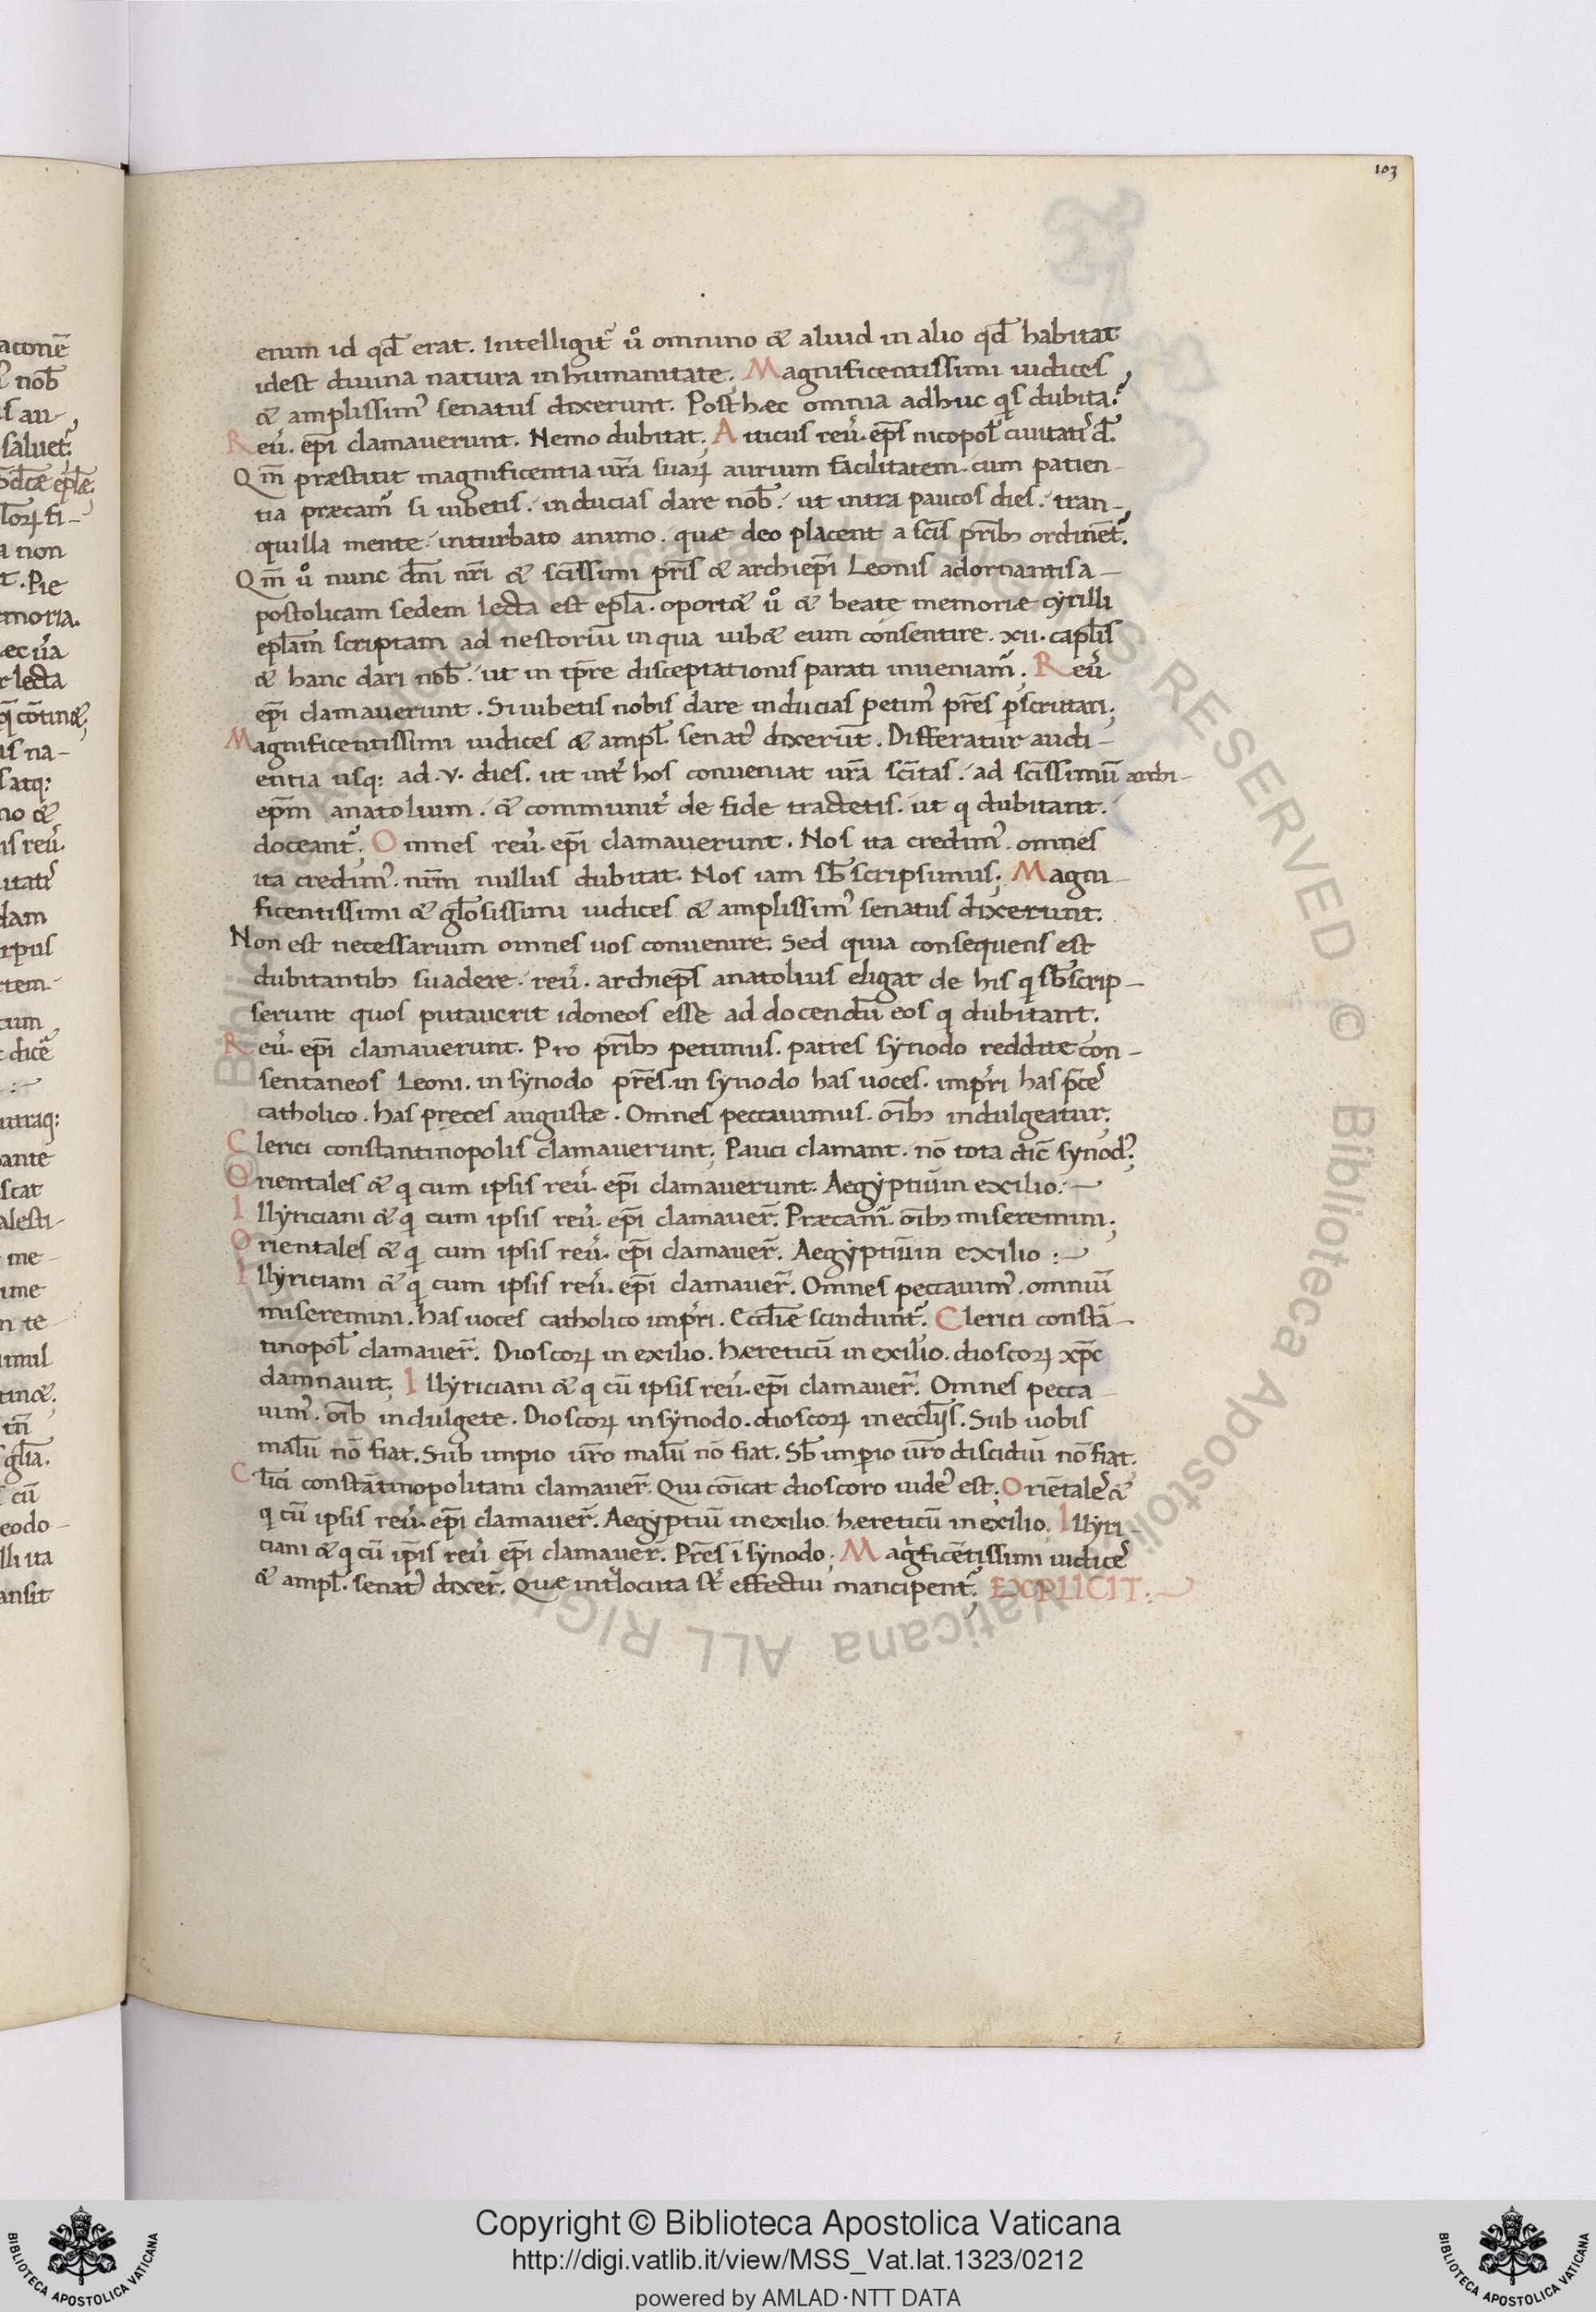 103
enim id qd̄ erat. Intelligit᷑ ů omnino & aliud in alio qd̄ habitat
idest diuina natura inhumanitate; Magnificentissimi iudices
& amplissim᾽ senatus dixerunt. Posthæc omnia adhuc q̇s dubitat᷑
Reu̓. ēpi clamauerunt. Nemo dubitat. Atticus reu̓. ep̄s nicopol̄ ciuitatis d̄.
Qm̄ præstitit magnificentia ur̄a suaꝝ aurium facilitatem. cum patien-
tia præcam᷑ si iubetis. inducias dare nob̄. ut intra paucos dies. tran-
quilla mente. inturbato animo. quæ deo placent a sc̄is prīb; ordinēt᷑.
Qm̄ ů nunc dn̄i nr̄i & sc̄issimi pr̄is & archiep̄i Leonis adornantis a-
postolicam sedem lecta est epl̄a. oport& ů & beatę memoriæ cyrilli
epl̄am scriptam ad nestoriū in qua iub& eum consentire. xii. capl̄is
& hanc dari nob̄. ut in tp̄re disceptationis parati inueniam᷑; Reu̓
ep̄i clamauerunt. Si iubetis nobis dare inducias petim᾽ pr̄es p̱scrutari;
Magnificentissimi iudices & ampl̄. senat᾽ dixerūt. Differatur audi-
entia usq; ad. v. dies. ut int̓ hos conueniat ur̄a sc̄itas. ad sc̄issimū archi-
ep̄m anatolium. & communit̓ de fide tractetis. ut q dubitant.
doceant᷑; Omnes reu̓. ep̄i clamauerunt. Nos ita credim᾽. omnes
ita credim᾽. nr̄m nullus dubitat. Nos iam sb̄scripsimus; Magni-
ficentissimi & gl̄osissimi iudices & amplissim᾽ senatus dixerunt.
Non est necessarium omnes uos conuenire. Sed quia consequens est
dubitantib; suadere. reu̓. archiep̄s anatolius eligat de his q sb̄scrip-
serunt quos putauerit idoneos esse ad docendū eos q dubitant.
Reu̓. ep̄i clamauerunt. Pro prīb; petimus. patres synodo reddite con-
sentaneos Leoni. in synodo pr̄es. in synodo has uoces. imp̱ri has p̄ces
catholico. has pręces augustæ. Omnes peccauimus. oīb; indulgeatur;
Clerici constantinopolis clamauerunt; Pauci clamant. nō tota dic̄ synod᾽;
Orientales & q cum ipsis reu̓. ep̄i clamauerunt. Aegyptiūm exilio:-
Illyriciani & q cum ipsis reu̓. ep̄i clamauer̄. Præcam᷑. oīb; miseremini;
Orientales & q cum ipsis reu̓. ep̄i clamauer̄. Aegyptiū in exilio:-
Illyriciani & q cum ipsis reu̓. ep̄i clamauer̄. Omnes peccauim᾽. omniū
miseremini. has uoces catholico imp̱ri. Eccl̄iæ scindunt᷑. Clerici constā-
tinopol̄ clamauer̄. Dioscoꝝ in exilio. hæreticū in exilio. dioscoꝝ xp̄c
damnauit; Illyriciani & q cū ipsis reu̓. ep̄i clamauer̄. Omnes pecca
uim᾽. oīb indulgete. Dioscoꝝ in synodo. dioscoꝝ in eccl̄ijs. Sub uobis
malū nō fiat. Sub imp̱io ur̄o malū nō fiat. Sb̄ imp̱io ur̄o discidiū nō fiat.
Cl̄ici constātinopolitani clamauer̄. Qui cōicat dioscoro iudeus est; Oriētales &
q cū ipsis reu̓. ep̄i clamauer̄. Aegyptiū in exilio. hæreticū in exilio. Illyri-
ciani & q cū ip̄is reu̓ ep̄i clamauer̄. Pr̄es ī synodo; Magn̄ficētissimi iudices
& ampl̄. senat᾽ dixer̄. Quæ int̓locuta st̄ effectui mancipent᷑; EXPLICIT:-
Copyright © Biblioteca Apostolica Vaticana
http://digi.vatlib.it/view/MSS_Vat.lat.1323/0212
powered by AMLAD·NTT DATA
BIBLIOTECA APOSTOLICA VATICANA
BIBLIOTECA APOSTOLICA VATICANA